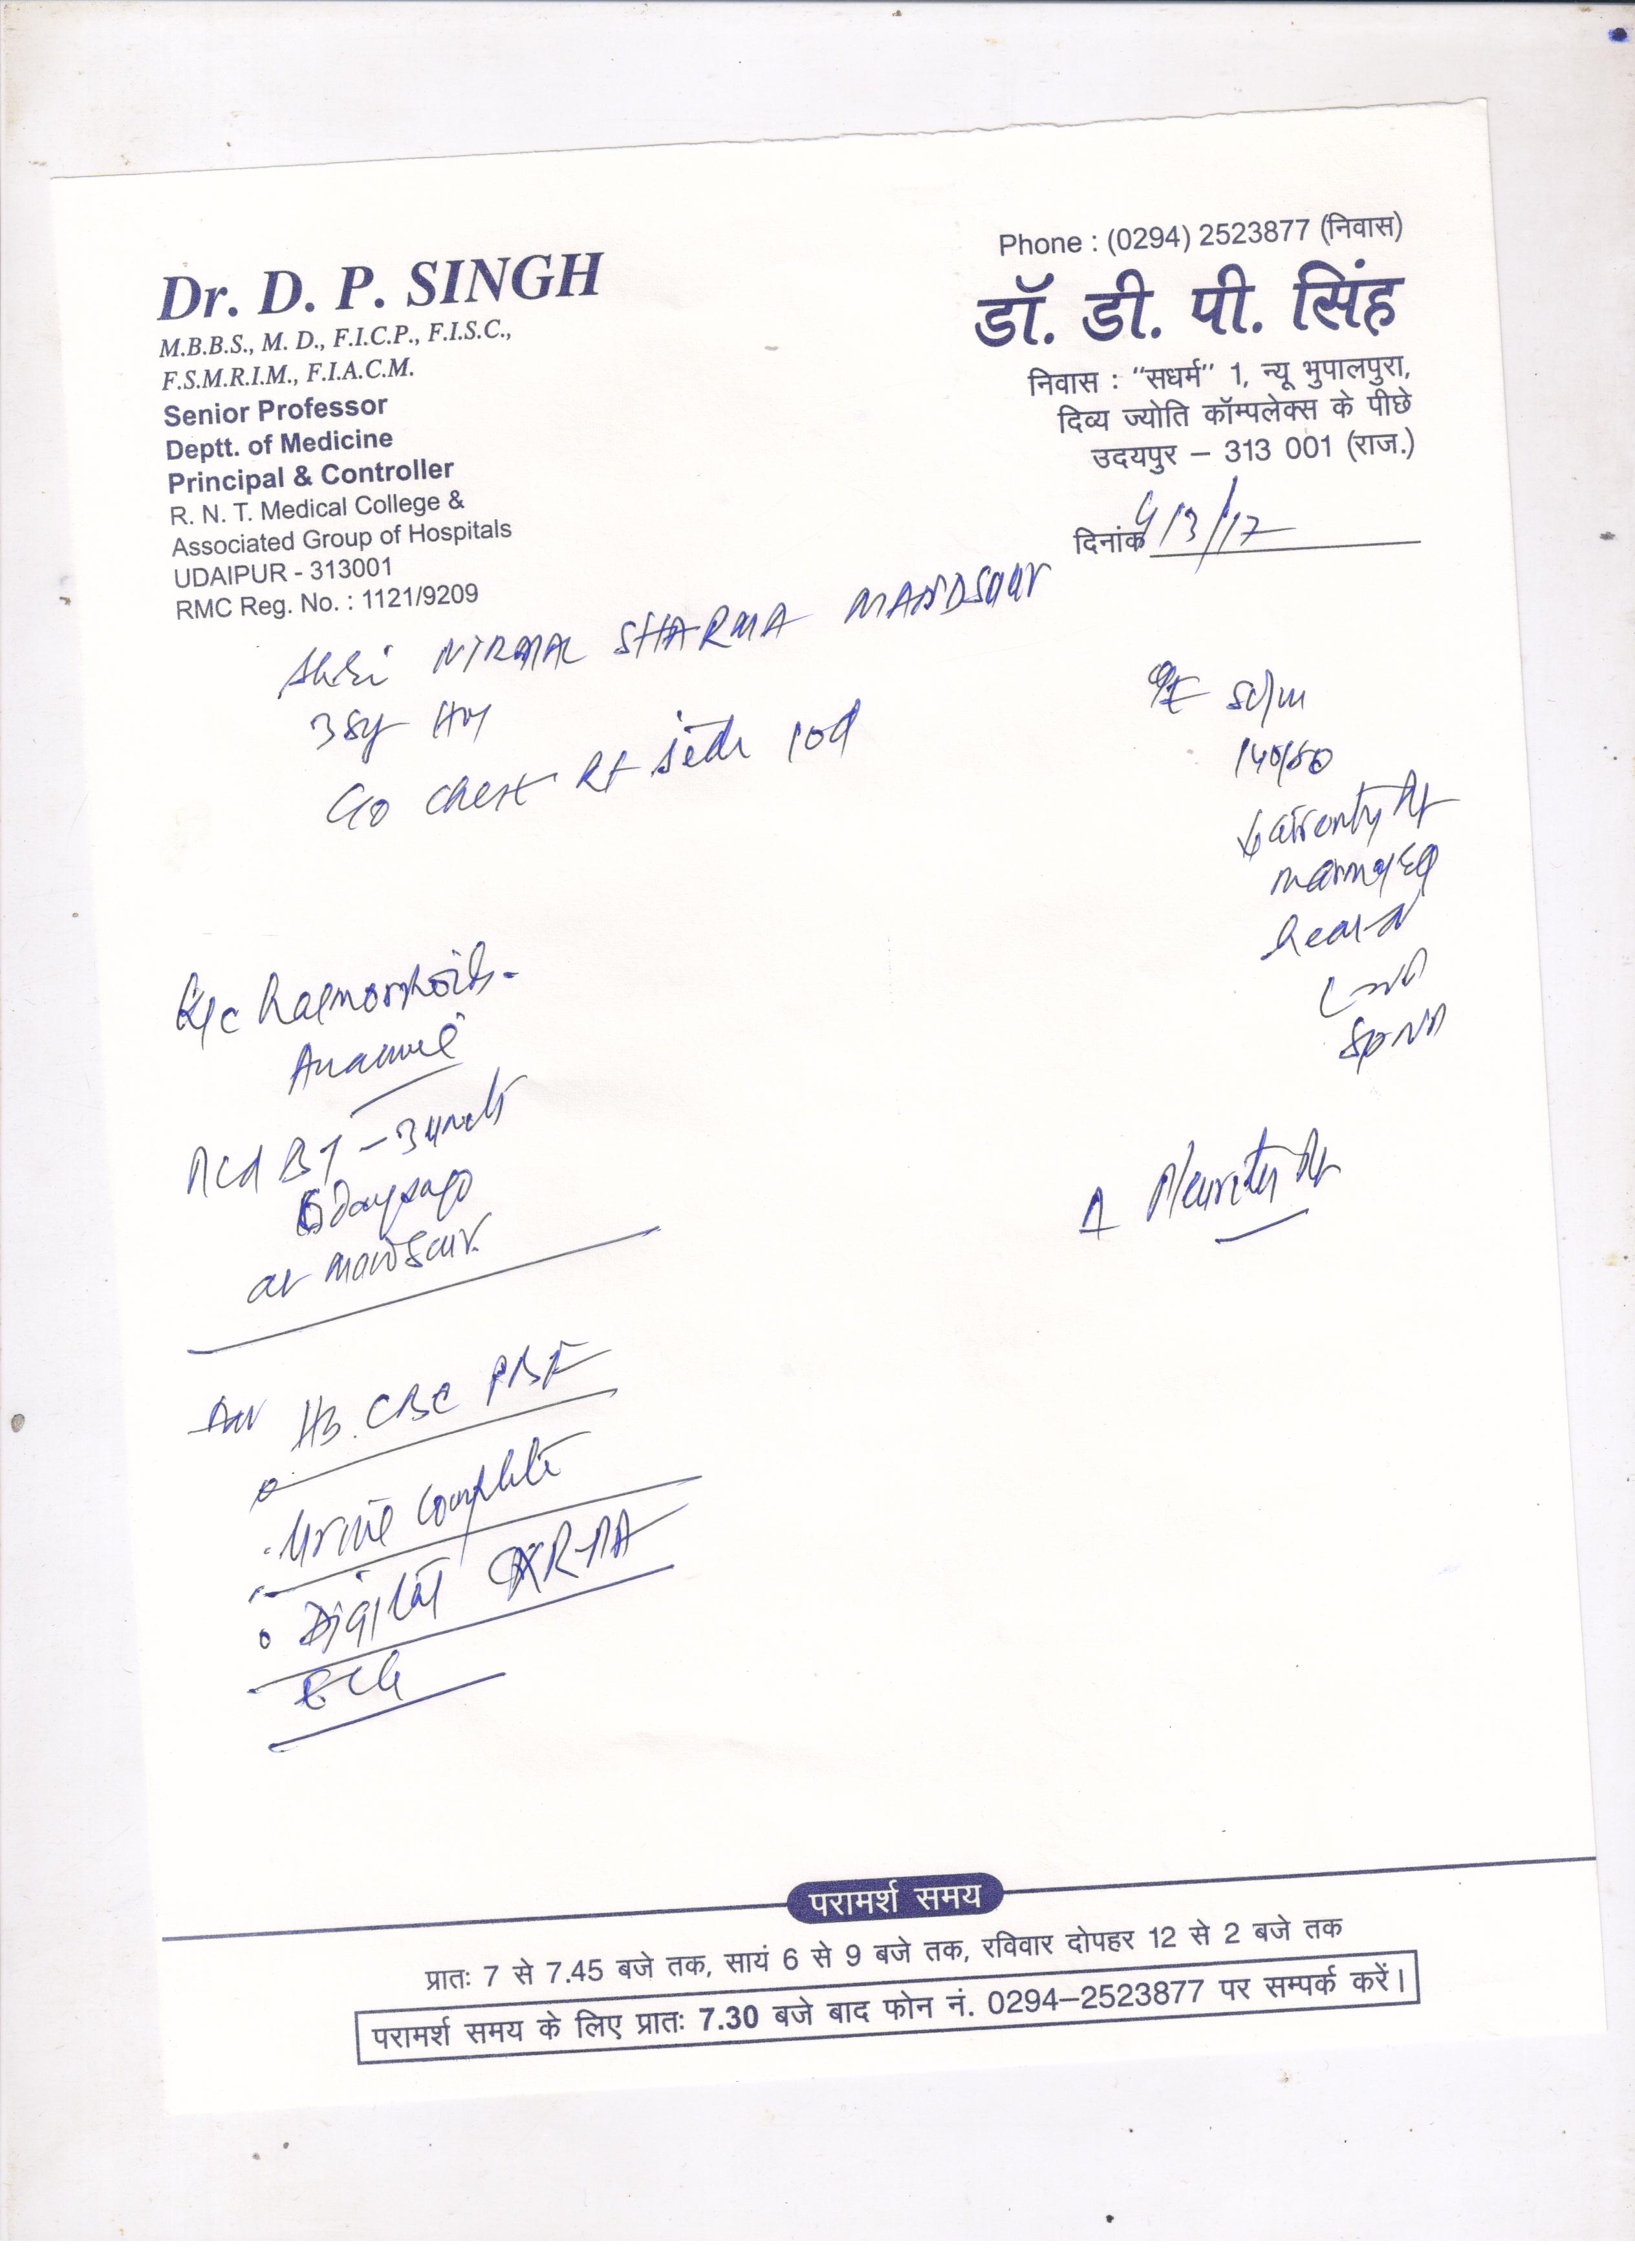 Phone : (0294) 2523877 (निवास)
Dr. D. P. SINGH
M.B.B.S., M. D., F.I.C.P., F.I.S.C.,
F.S.M.R.I.M., F.I.A.C.M.
Senior Professor
Deptt. of Medicine
Principal & Controller
R. N. T. Medical College &
Associated Group of Hospitals
UDAIPUR - 313001
RMC Reg. No. : 1121/9209
डॉ. डी. पी. सिंह
निवास : "सधर्म" 1, न्यू भुपालपुरा,
दिव्य ज्योति कॉम्पलेक्स के पीछे
उदयपुर – 313 001 (राज.)
दिनांक /3/17
Shri NIRMAL SHARMA MANDSAUR
38y
C/o chest Rt side 10d
O/E
140/80
Rt
heart N
K/c haemorrhoids.
Anaemic
BT – 3 units
6 days ago
at mandsaur.
Pleuritis Rt
Adv Hb. CBC PBF
Urine complete
Digital CXR-PA
ECG
परामर्श समय
प्रातः 7 से 7.45 बजे तक, सायं 6 से 9 बजे तक, रविवार दोपहर 12 से 2 बजे तक
परामर्श समय के लिए प्रातः 7.30 बजे बाद फोन नं. 0294–2523877 पर सम्पर्क करें।